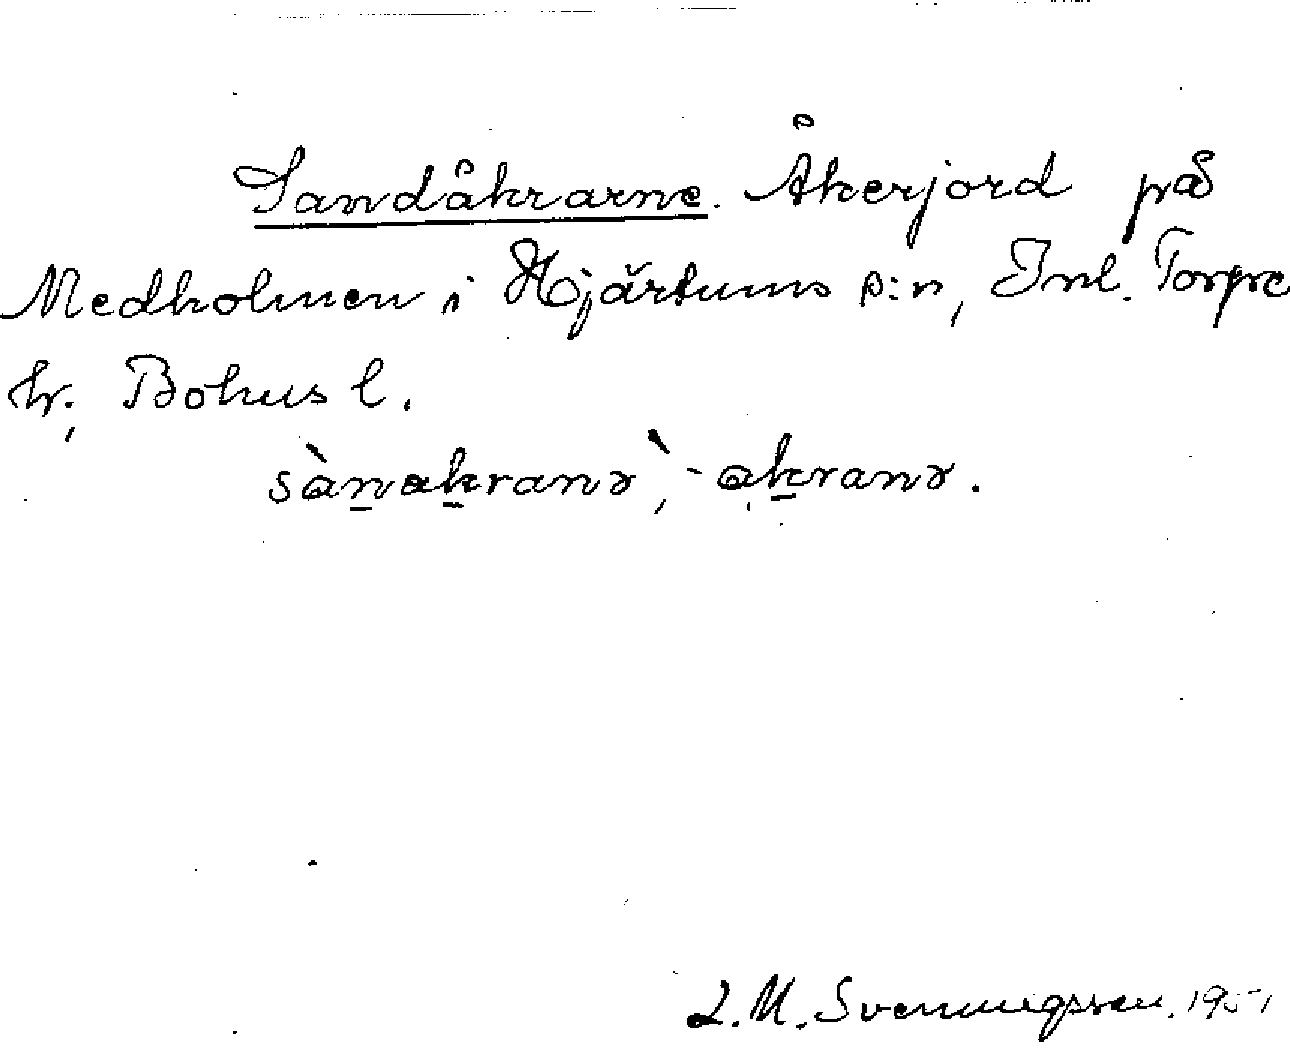 Sandåkrarne. Åkerjord på
Medholmen i Hjärtums s:n, Inl. Torpe
hr, Bohus l.
sànakranə`, -akranə.
L.M. Svenningsson. 1951